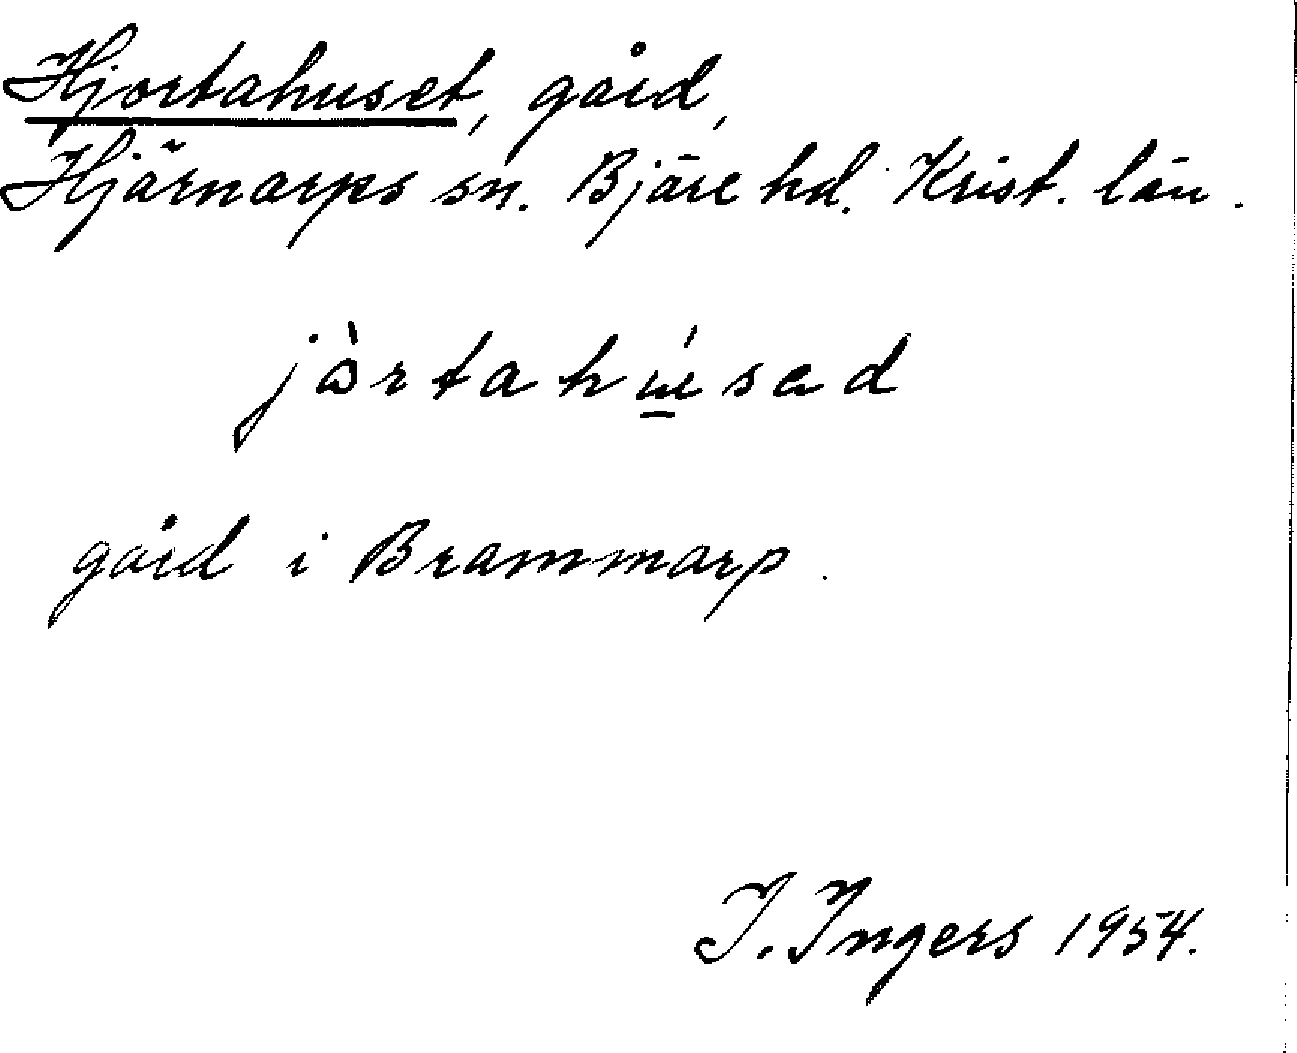 Hjortahuset, gård,
Hjärnarps sn. Bjäre hd. Krist. län.
jòrtahúsad
gård i Brammarp.
I. Ingers 1954.